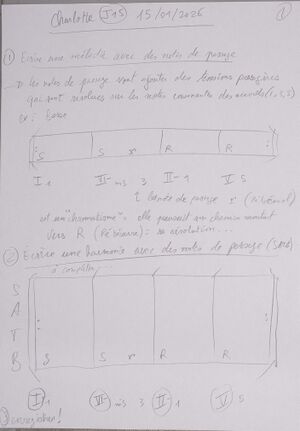 Charlotte (J15) 15/01/2026 1
① Ecrire une mélodie avec des notes de passage
→ les notes de passage vont ajouter des tensions passagères
qui sont résolues sur les notes constantes des accords (1, 3, 5)
ex : Basse
S S r R R
I 1 VI- 3 II- 1 V 5
note de passage r (ré bémol)
est un "chromatisme" : elle poursuit un chemin
vers R (ré bécarre) = sa résolution...
② Ecrire une harmonie avec des notes de passage (SATB)
à compléter
S
A
T
B S S r R R
I 1 VI 3 II 1 V 5
③ enregistrer !